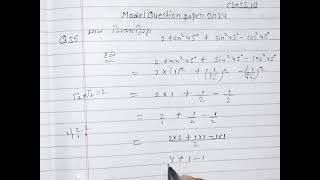 CLASS 10
Model Question paper 2024
Q25 मान निकालिए 2tan²45° + sin²45° - cos²45°
हल 2tan²45° + sin²45° - cos²45°
= 2×(1)² + (1/√2)² - (1/√2)²
√2×√2=2 = 2×1 + 1/2 - 1/2
= 2/1 + 1/2 - 1/2
= 2×2 + 1×1 - 1×1 / 2
4 + 1 - 1